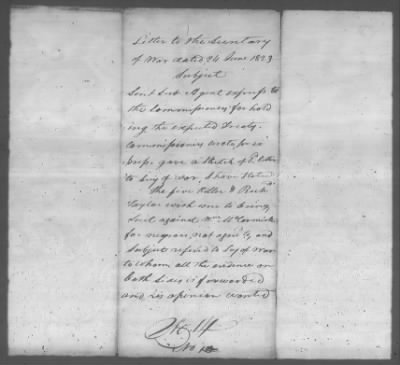 Letter to the Secretary
of War dated 24 June 1823
Subject
Sent Sub Agent express to
the Commissioners for hold
ing the expected Treaty.
Commissioners wrote
gave a sketch of letter
to Secy of War, I have stated
The five Killer & Rich
Taylor wish me to bring
Suit against Wm McCormick
for negroes, not and
Subject referd to Secy of War
to whom all the evidence on
both Sides is forwarded
and his opinion wanted
No 14
No